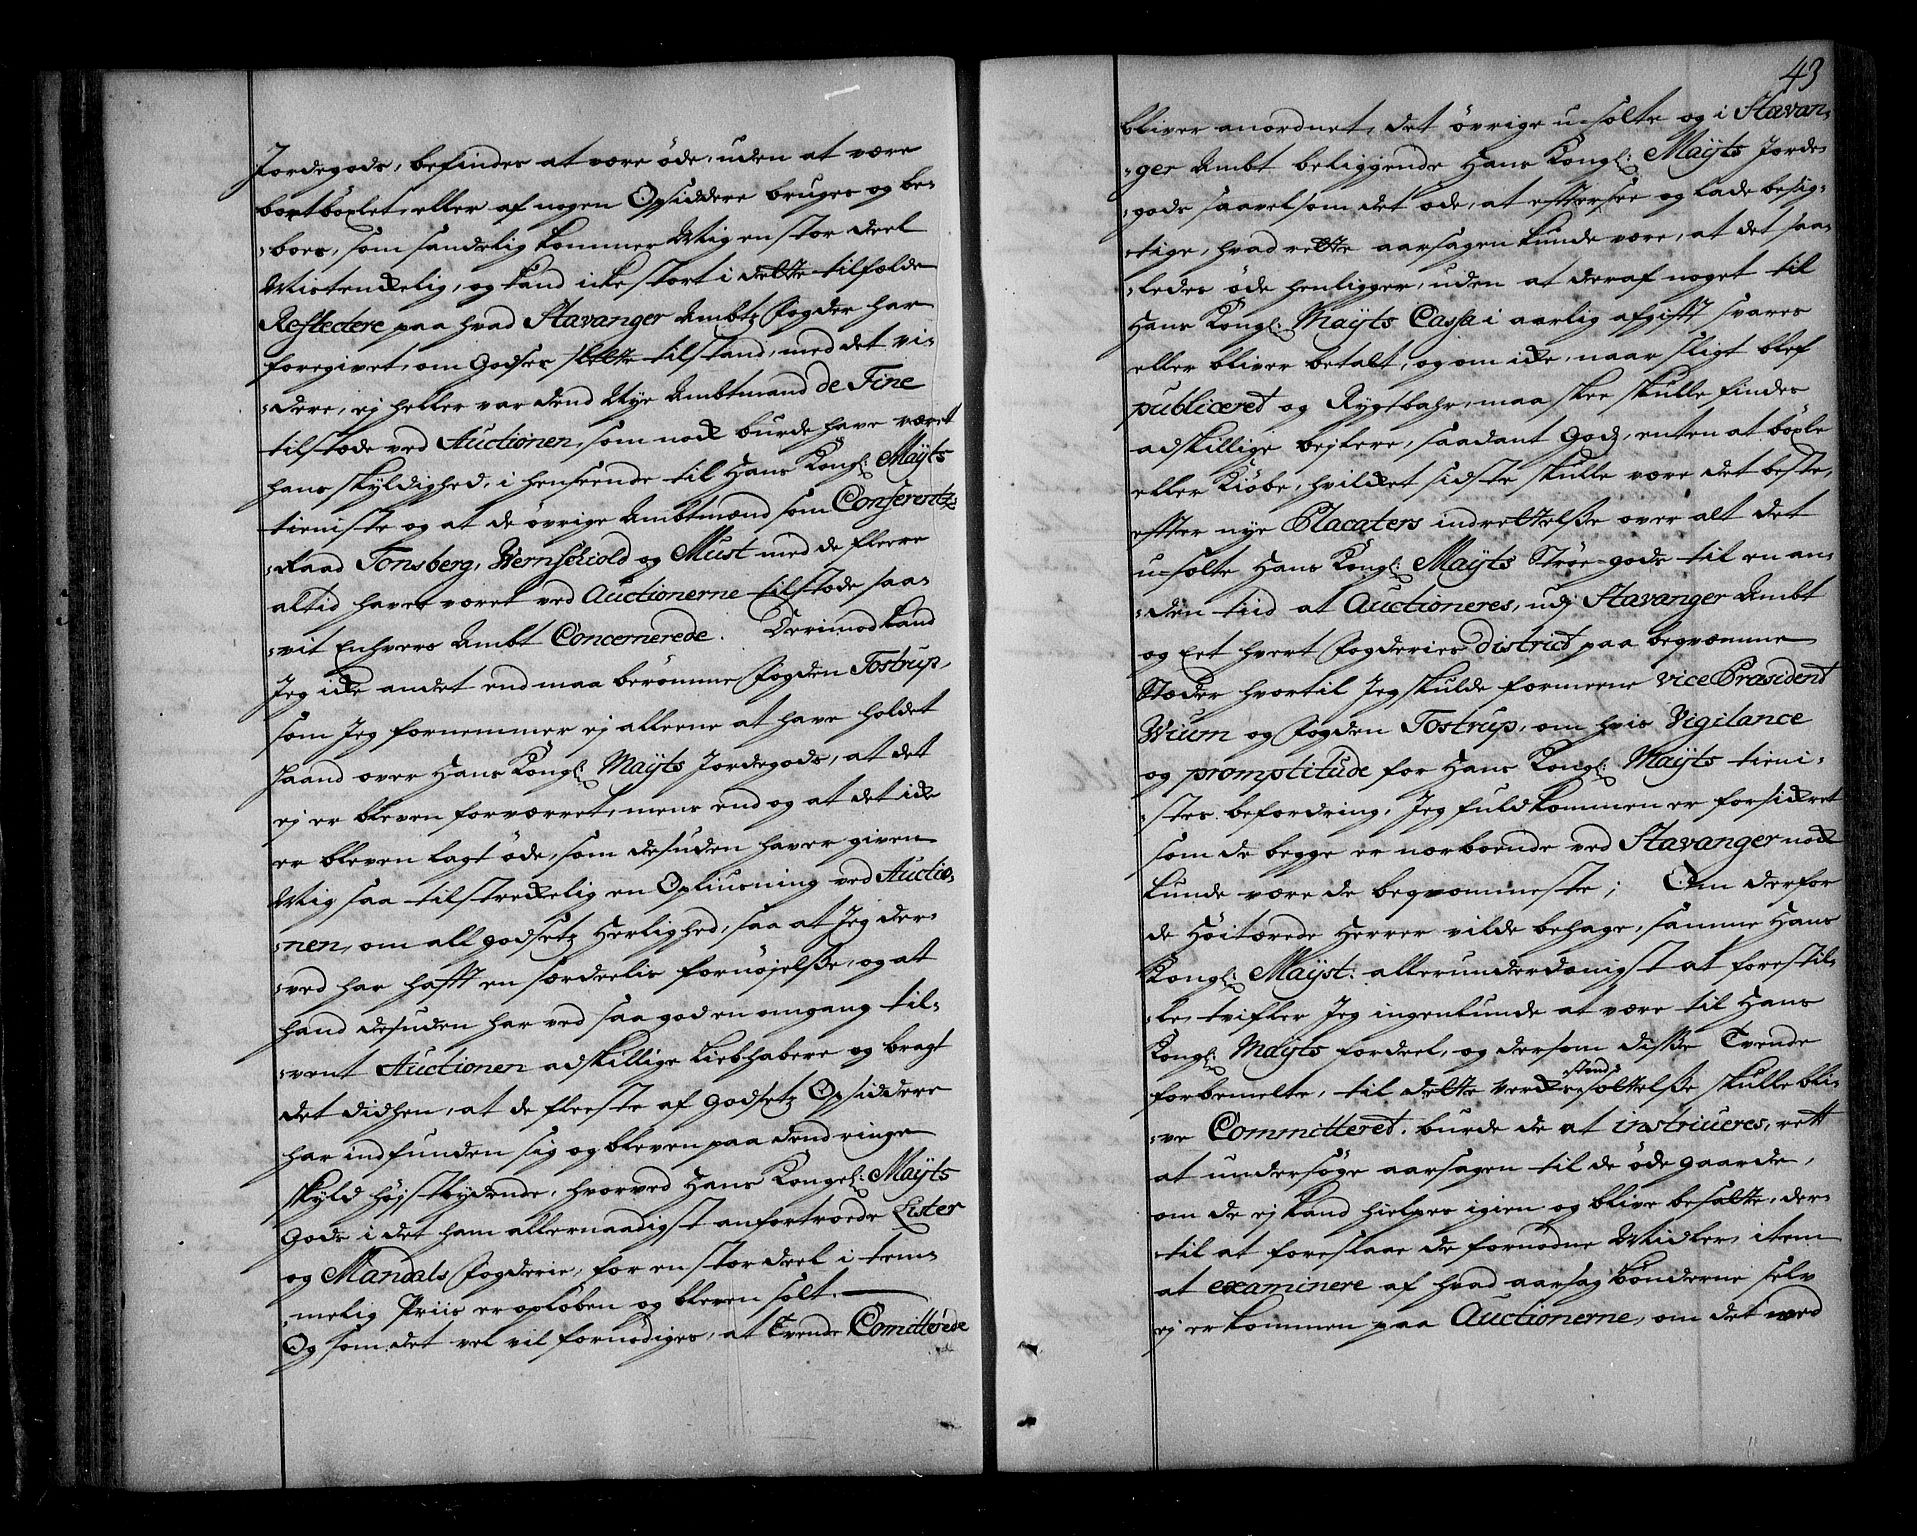 Jordegods, befindes at være öde, uden at være
bortböxlet, eller af nogen Opsiddere bruges og be-
-boes, som sandelig kommer Mig en stor deel
Mistenkelig, og kand icke stort i dette tilfælde
Reflectere paa hvad Stavanger Ambtz Fogder har
foregivet, om Godses slette tilstand, med det vi-
-dere, ej heller var dend Nye Ambtmand de Fine
tilstæde ved Auctionen, som nock burde have været
hans skyldighed, i henseende til Hans Kongl: Maÿts
tieniste og at de övrige Ambtmænd som Conferentz-
-Raad Tonsberg, Wernschiold og Must med de fleere
altid haver været ved Auctionerne tilstæde saa-
-vit Enhvers Ambt Concernerede. Derimod kand
Jeg icke andet end maa berömme Fogden Tostrup,
som Jeg fornemmer ej alleene at have holdet
haand over Hans Kongl: Maÿts Jordegods, at det
ej er bleven forværret, mens end og at det icke
er bleven lagt öde, som desuden haver given
Mig saa tilstreckelig en Opliusning ved Auctio-
-nen, om all godsetz Herlighed, saa at Jeg der-
-ved har hafft en særdeelis fornöjelße, og at
hand desuden har ved saa god en omgang til-
-vent Auctionen adskillige Liebhabere og bragt
det didhen, at de fleeste af Godsetz Opsiddere
har indfunden sig og bleven paa dend ringe
skyld höjstbydende, hvorved Hans Kongel: Maÿts
Gods i det ham allernaadigst anfortroede Lister
og Mandals Fogderie, for en stor deel i tem-
-melig Priis er opløben og bleven solt.
Og som det vel vil fornödiges, at Tvende Comitterede
43
bliver anordnet, det övrige u-solte og i Stavan-
-ger Ambt beliggende Hans Kongl: Maÿts Jorde-
-gods saavelsom det öde, at effterse og lade besig-
-tige, hvad rette aarsagen kunde være, at det saa-
-ledes öde henligger, uden at deraf noget til
Hans Kongl: Maÿts Cassa i aarlig afgifft svares
eller bliver betalt, og om icke, naar sligt blef
publiceret og Rygtbahr, maa skee skulle findes
adskillige bejlere, saadant God, enten at böxle
eller Kiöbe, hvilcket sidste skulle være det beste,
effter nye Placaters indrettelße over alt det
u-solte Hans Kongl: Maÿts Ströe-gods til en an-
-den tiid at Auctioneres, udj Stavanger Ambt
og Eet hvert Fogderies district paa begvemme
Stæder hvortil Jeg skulde formeene Vice Præsident
Wium og Fogden Tostrup, om hvis Vigilance
og promptitude for Hans Kongl: Maÿts tieni-
-stes befordring, Jeg fuldkommen er forsickret
som de begge er nærboende ved Stavanger nock
kunde være de begvemmeste; Om derfor
de Höitærede Herrer vilde behage, samme Hans
Kongl: Maÿst: allerunderdanigst at forestil-
-le, tvifler Jeg ingenlunde at være til Hans
Kongl: Maÿts fordeel, og dersom diße Tvende
forbemelte, til dette Vercks stands søttelße skulle bli-
-ve Committeret, burde de at instrueres, rett
at undersöge aarsagen til de öde gaarde,
om de ej kand hielpes igien og blive besatte, der-
-til at foreslaae de fornödne Midler, item
at examinere af hvad aarsag bönderne selv
ej er kommen paa Auctionerne, om det med